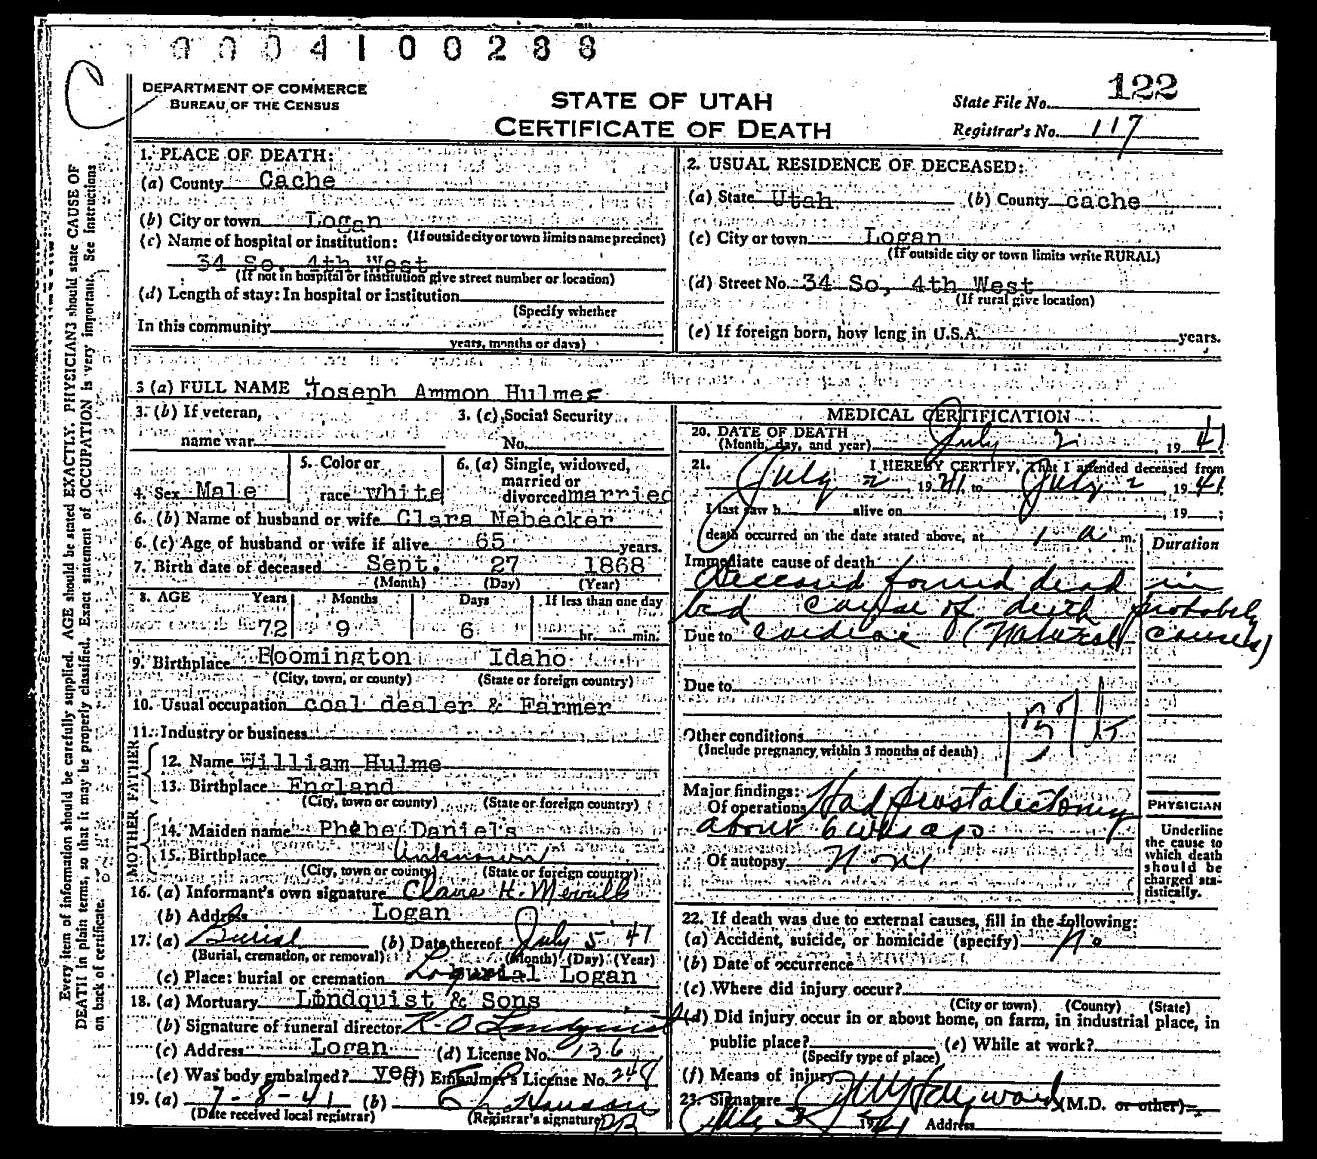 0004100288
C
DEPARTMENT OF COMMERCE
BUREAU OF THE CENSUS
STATE OF UTAH
CERTIFICATE OF DEATH
State File No. 122
Registrar's No. 117
Every item of information should be carefully supplied. AGE should be stated EXACTLY. PHYSICIANS should state CAUSE OF
DEATH in plain terms, so that it may be properly classified. Exact statement of OCCUPATION is very important. See instructions
on back of certificate.
1. PLACE OF DEATH:
(a) County Cache
(b) City or town Logan
(If outside city or town limits name precinct)
(c) Name of hospital or institution:
34 So, 4th West
(If not in hospital or institution give street number or location)
(d) Length of stay: In hospital or institution
(Specify whether
In this community
years, months or days)
2. USUAL RESIDENCE OF DECEASED:
(a) State Utah (b) County cache
(c) City or town Logan
(If outside city or town limits write RURAL)
(d) Street No. 34 So, 4th West
(If rural give location)
(e) If foreign born, how long in U.S.A. years.
3 (a) FULL NAME Joseph Ammon Hulmes
3. (b) If veteran,
name war
3. (c) Social Security
No.
4. Sex Male
5. Color or
race white
6. (a) Single, widowed,
married or
divorced married
6. (b) Name of husband or wife Clara Nebecker
6. (c) Age of husband or wife if alive 65 years.
7. Birth date of deceased Sept. 27 1868
(Month) (Day) (Year)
8. AGE Years Months Days If less than one day
72 9 6 hr. min.
9. Birthplace Boomington Idaho
(City, town, or county) (State or foreign country)
10. Usual occupation coal dealer & Farmer
11. Industry or business
FATHER
12. Name William Hulme
13. Birthplace England
(City, town or county) (State or foreign country)
MOTHER
14. Maiden name Phebe Daniels
15. Birthplace Unknown
(City, town or county) (State or foreign country)
16. (a) Informant's own signature Claire H. Merrill
(b) Address Logan
17. (a) Burial (b) Date thereof July 5 41
(Burial, cremation, or removal) (Month) (Day) (Year)
(c) Place: burial or cremation Logan
18. (a) Mortuary Lindquist & Sons
(b) Signature of funeral director K. O Lindquist
(c) Address Logan (d) License No. 136
(e) Was body embalmed? yes (f) Embalmer's License No.
19. (a) 7-8-41 (b)
(Date received local registrar) (Registrar's signature)
MEDICAL CERTIFICATION
20. DATE OF DEATH
(Month, day, and year) July 2, 1941
21. I HEREBY CERTIFY, That I attended deceased from
July 2 1941 to July 2 1941
I last saw h alive on , 19 ;
death occurred on the date stated above, at 1 a m.
Duration
Immediate cause of death
Deceased found dead in
bed cause of death probably
Due to cardiac (Natural causes)
Due to
Other conditions
(Include pregnancy within 3 months of death)
Major findings:
Of operations Had prostatectomy
about 6 wks ago
Of autopsy None
PHYSICIAN
Underline
the cause to
which death
should be
charged sta-
tistically.
22. If death was due to external causes, fill in the following:
(a) Accident, suicide, or homicide (specify) No
(b) Date of occurrence
(c) Where did injury occur?
(City or town) (County) (State)
(d) Did injury occur in or about home, on farm, in industrial place, in
public place? (e) While at work?
(Specify type of place)
(f) Means of injury
23. Signature Hayward (M.D. or other)
July 3 1941 Address